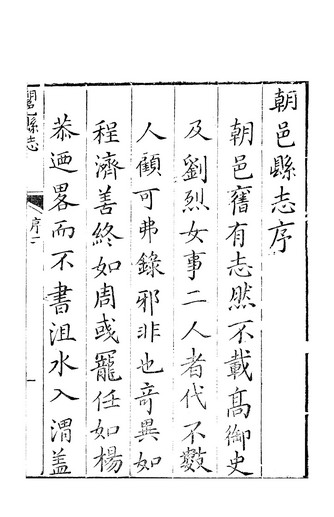 朝邑縣志序
朝邑舊有志然不載高御史
及劉烈女事二人者代不數
人顧可弗錄邪非也竒異如
程濟善終如周彧寵任如楊
恭迺畧而不書沮水入渭盖
縣志
序